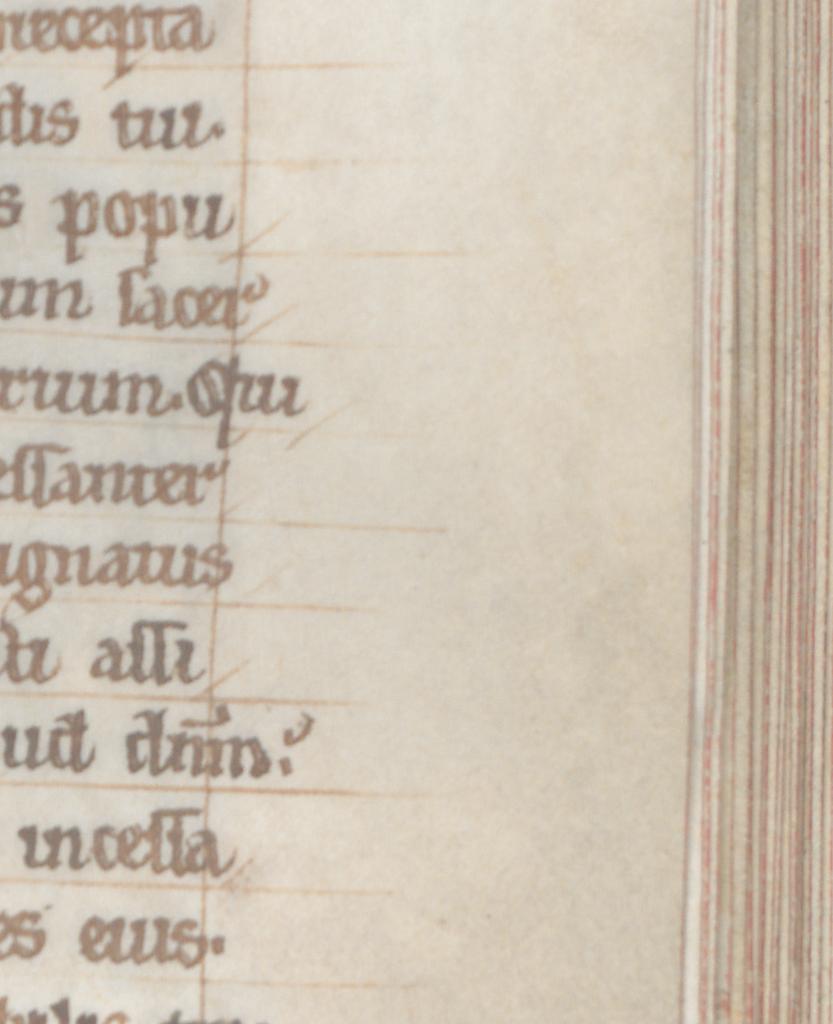 recepta
dis tui.
s popu
um sacer
rium. Qui
essanter
ignatus
di assi
ud dnm.
incessa
es eius.